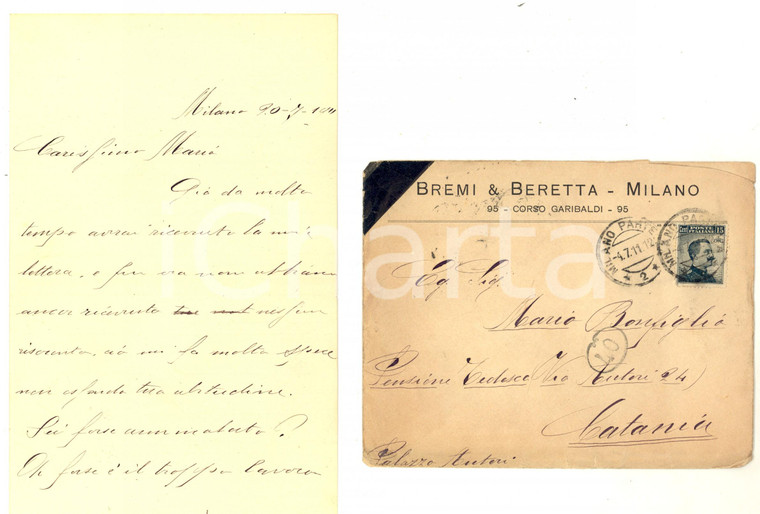 Milano 20-7-1911
Carissimo Mario
Già da molto
tempo avrai ricevuto la mia
lettera, e fin ora non abbiamo
ancor ricevuto nessun
riscontro, ciò mi fa molto specie
non essendo tua abitudine.
Sei forse ammalato?
Oh forse è il troppo lavoro
BREMI & BERETTA - MILANO
95 - CORSO GARIBALDI - 95
MILANO PARTENZA
-4.7.11
* 2 *
POSTE ITALIANE 15
Eg. Sig.
Mario Bonfiglio
40
Pensione Tedesco (Via Autori 24)
Catania
Palazzo Autori
iCharta